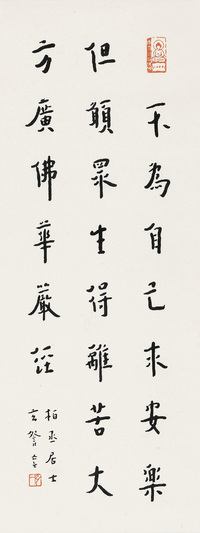 不為自己求安樂
但願眾生得離苦大
方廣佛華嚴經
柏丞居士
玄